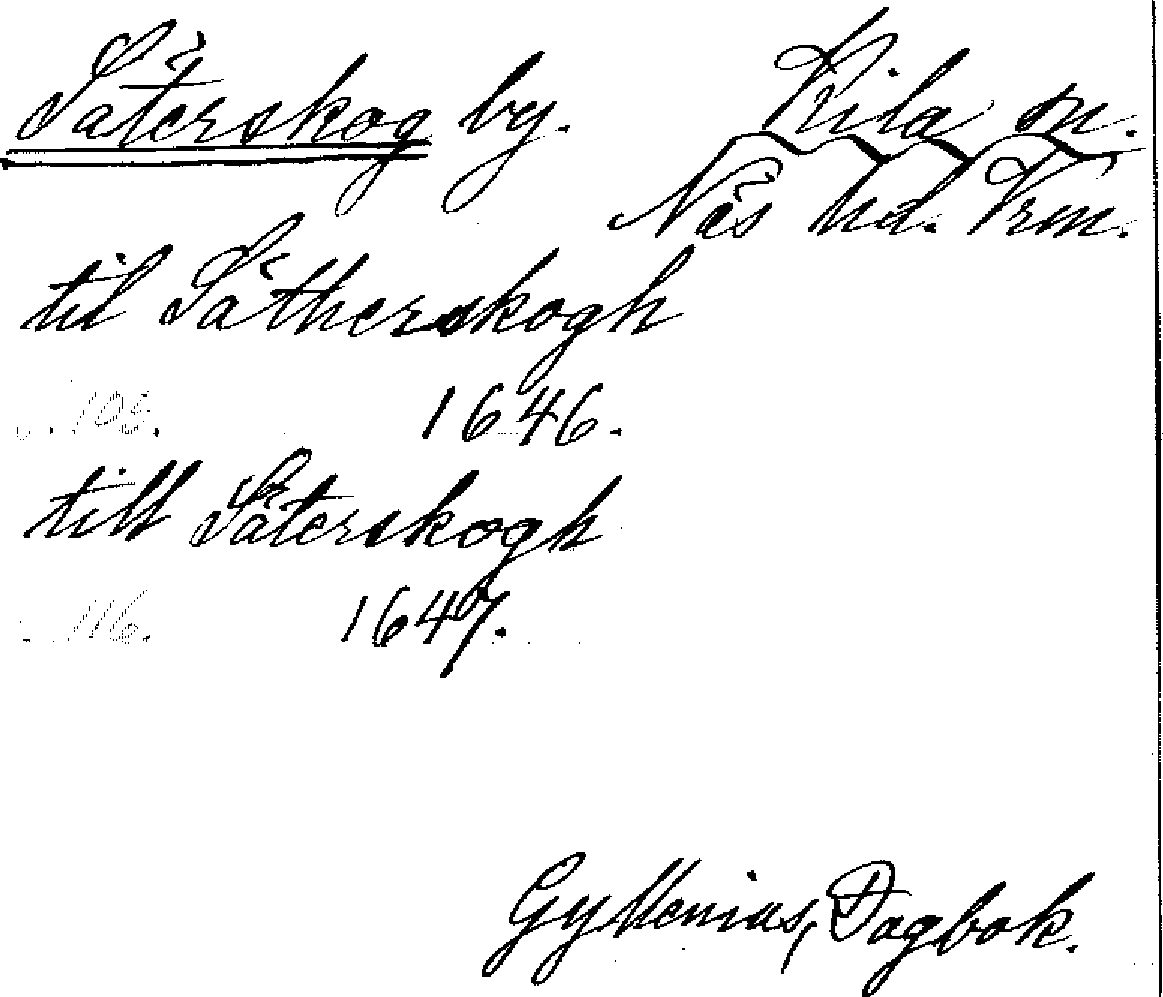 Säterskog by. Kila sn.
Näs hd. Vrm.
til Sätherskogh
1646.
till Säterskogh
116. 1647.
Gyllenius, Dagbok.